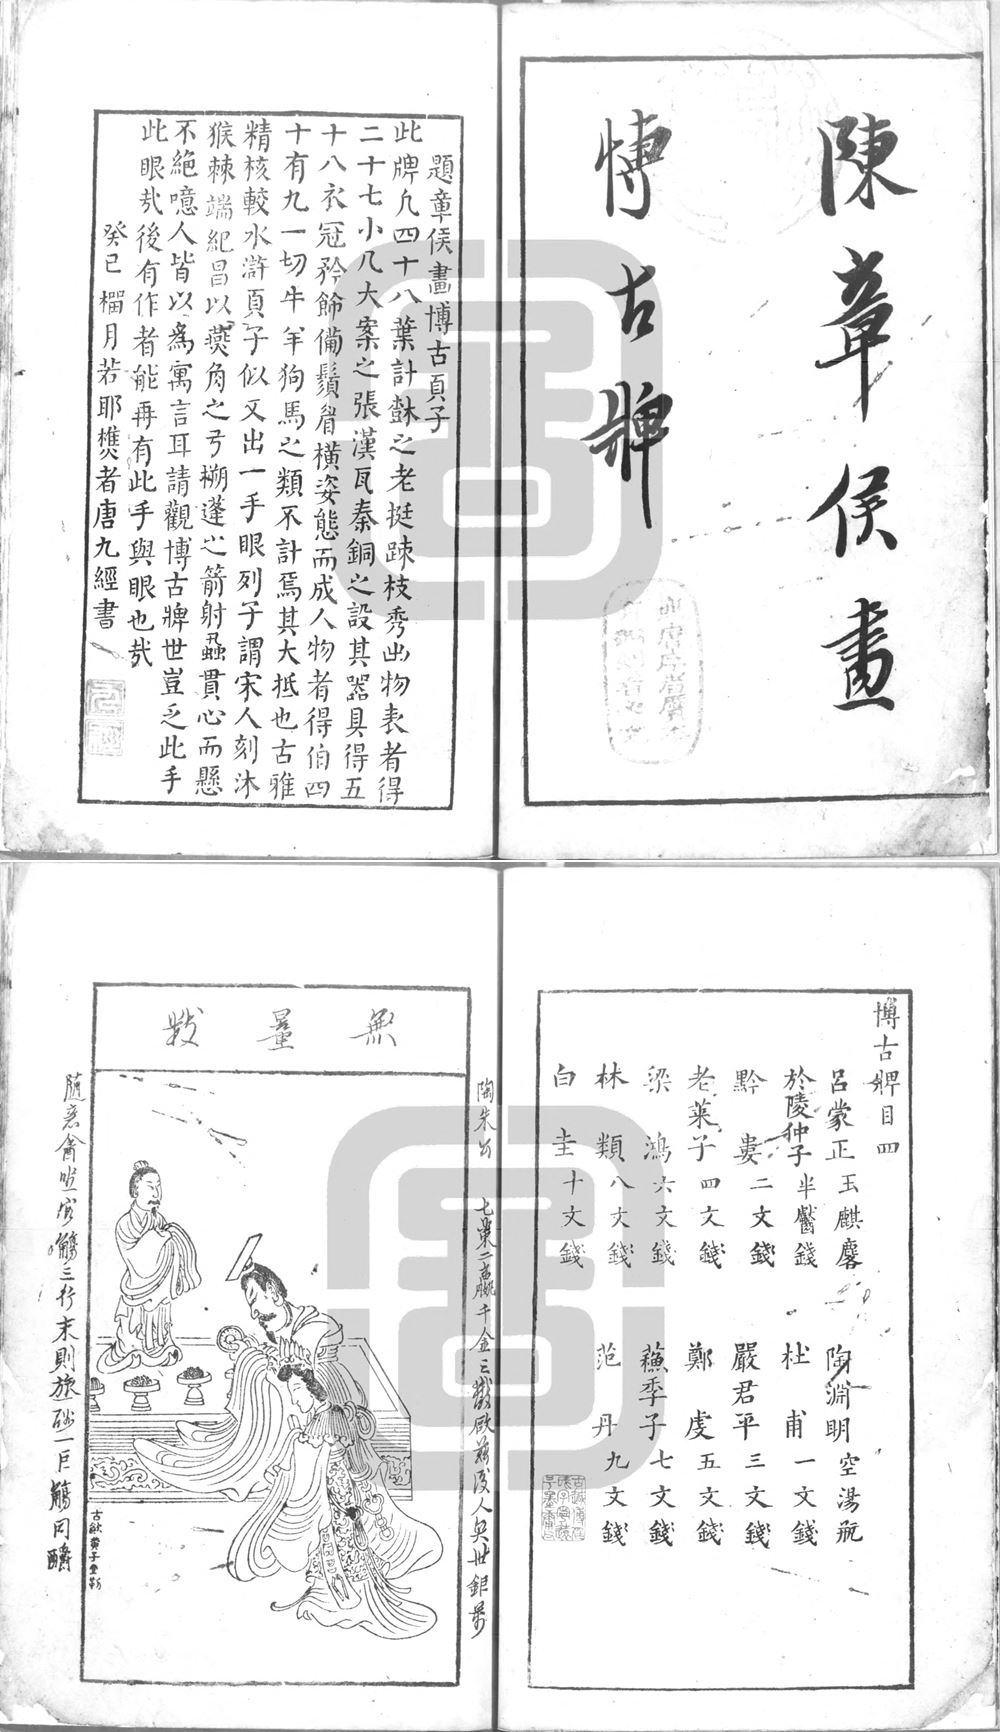 陳章侯畫
博古牌
題章侯畫博古頁子
此牌凢四十八葉計䔞之老挺踈枝秀出物表者得
二十七小几大案之張漢瓦秦銅之設其噐具得五
十八衣冠矜飾備鬚眉橫姿態而成人物者得伯四
十有九一切牛羊狗馬之類不計焉其大抵也古雅
精核較水滸頁子似又出一手眼列子謂宋人刻沐
猴棘端紀昌以燕角之弓朔蓬之箭射蝨貫心而懸
不絕噫人皆以為寓言耳請觀博古牌世豈乏此手
此眼㢤後有作者能再有此手與眼也㢤
癸巳橊月若耶樵者唐九經書
博古牌目四
呂蒙正玉麒麐 陶淵明空湯瓶
於陵仲子半齾錢 杜甫一文錢
黔婁二文錢 嚴君平三文錢
老萊子四文錢 鄭虔五文錢
梁鴻六文錢 蘇季子七文錢
林類八文錢 范丹九文錢
白圭十文錢
無量數
陶朱公
古歙黄子立刻